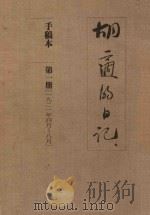 胡適的日記
手稿本
第一册
一九二一年四月—八月